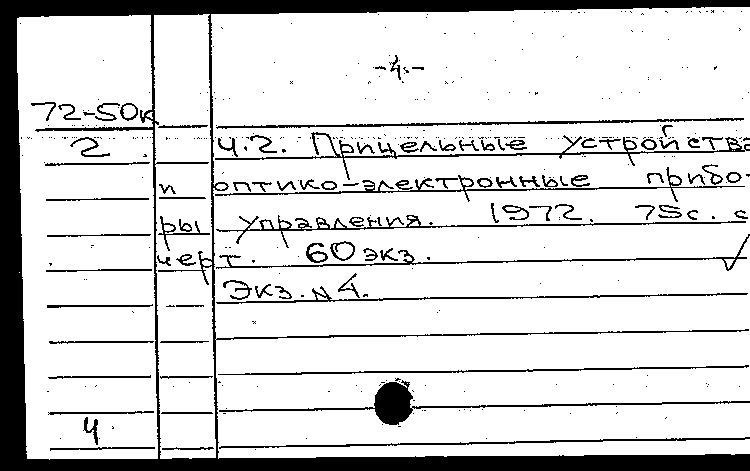 -4-
72-50к
2 ч.2. Прицельные устройства
и оптико-электронные прибо-
ры управления. 1972. 75с. с
черт. 60 экз.
Экз. N 4.
4